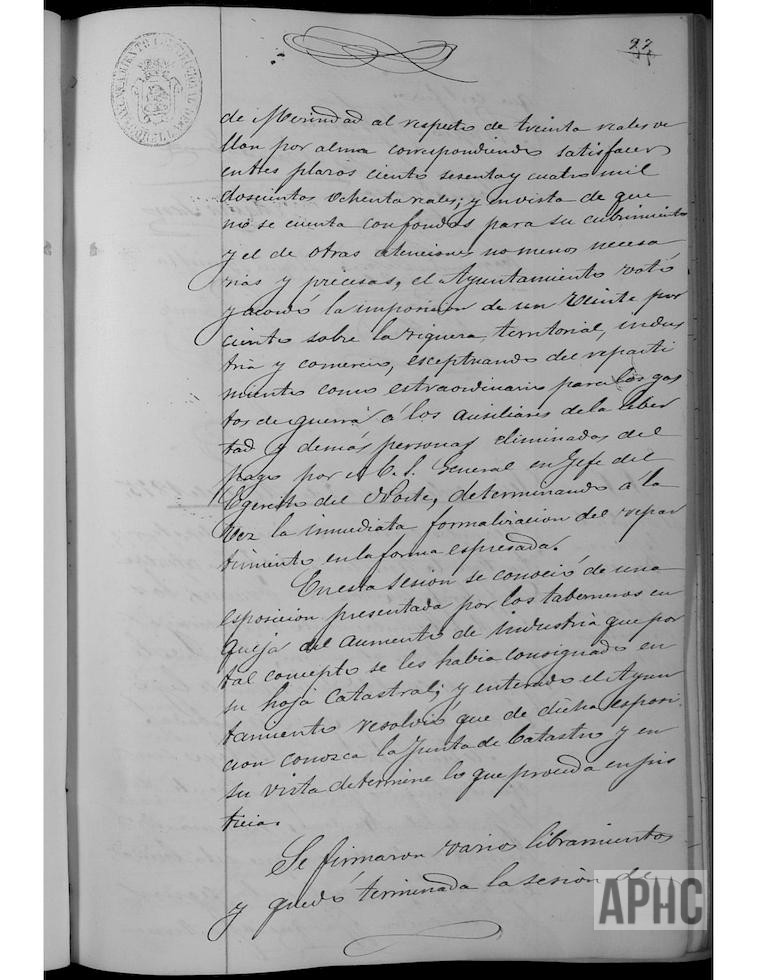 27
de Merindad al respecto de treinta reales ve
llon por alma correspondiendo satisfacer
en tres plazos ciento sesenta y cuatro mil
doscientos ochenta reales; y en vista de que
no se cuenta con fondos para su cubrimiento
y el de otras atenciones no menos necesa
rias y precisas, el Ayuntamiento votó
y acordó la imposicion de un veinte por
ciento sobre la riqueza, territorial, indus
tria y comercio, esceptuando del reparti
miento como estraordinario para los gas
tos de guerra á los auxiliares de la liber
tad y demás personas eliminadas del
pago por el E. S. General en Gefe del
Egercito del Norte, determinando á la
vez la inmediata formalizacion del repar
timiento en la forma espresada.
En esta sesion se conoció de una
esposicion presentada por los taberneros en
queja del aumento de industria que por
tal concepto se les habia consignado en
su hoja catastral; y enterado el Ayun
tamiento resolvió que de dicha esposi
cion conozca la Junta de Catastro y en
su vista determine lo que proceda en jus
ticia.
Se firmaron varios libramientos
y quedó terminada la sesion de
APHC